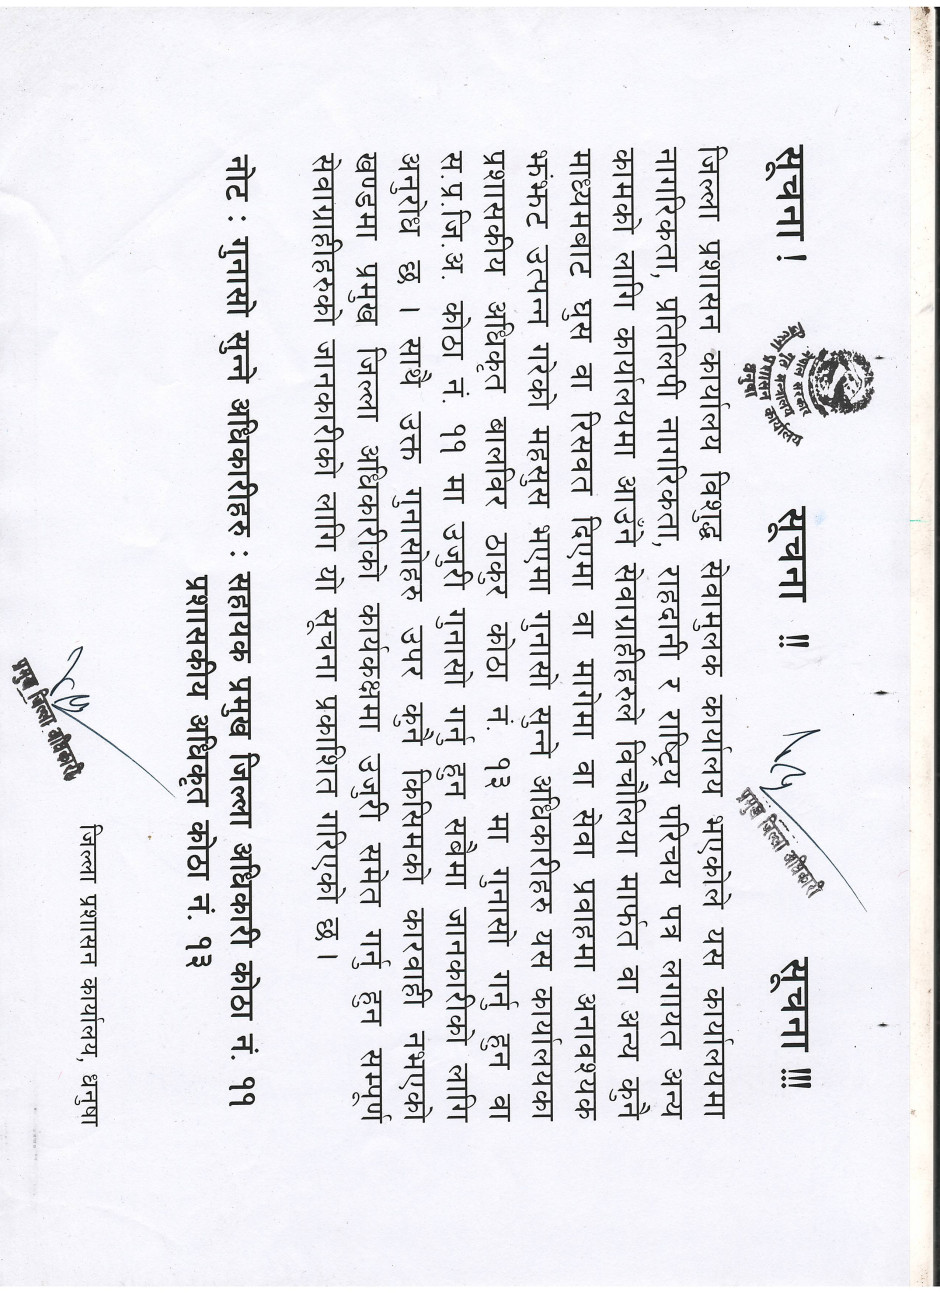 सूचना ! सूचना !! सूचना !!!
नेपाल सरकार
गृह मन्त्रालय
जिल्ला प्रशासन कार्यालय
धनुषा
प्रमुख जिल्ला अधिकारी
जिल्ला प्रशासन कार्यालय विशुद्ध सेवामुलक कार्यालय भएकोले यस कार्यालयमा
नागरिकता, प्रतिलिपी नागरिकता, राहदानी र राष्ट्रिय परिचय पत्र लगायत अन्य
कामको लागि कार्यालयमा आउने सेवाग्राहीहरुले विचौलिया मार्फत वा अन्य कुनै
माध्यमबाट घुस वा रिसवत दिएमा वा मागेमा वा सेवा प्रवाहमा अनावश्यक
झंझट उत्पन्न गरेको महसुस भएमा गुनासो सुन्ने अधिकारीहरु यस कार्यालयका
प्रशासकीय अधिकृत बालविर ठाकुर कोठा नं. १३ मा गुनासो गर्नु हुन वा
स.प्र.जि.अ. कोठा नं. ११ मा उजुरी गुनासो गर्नु हुन सवैमा जानकारीको लागि
अनुरोध छ । साथै उक्त गुनासोहरु उपर कुनै किसिमको कारवाही नभएको
खण्डमा प्रमुख जिल्ला अधिकारीको कार्यकक्षमा उजुरी समेत गर्नु हुन सम्पूर्ण
सेवाग्राहीहरुको जानकारीको लागि यो सूचना प्रकाशित गरिएको छ ।
नोट : गुनासो सुन्ने अधिकारीहरु : सहायक प्रमुख जिल्ला अधिकारी कोठा नं. ११
प्रशासकीय अधिकृत कोठा नं. १३
प्रमुख जिल्ला अधिकारी
जिल्ला प्रशासन कार्यालय, धनुषा